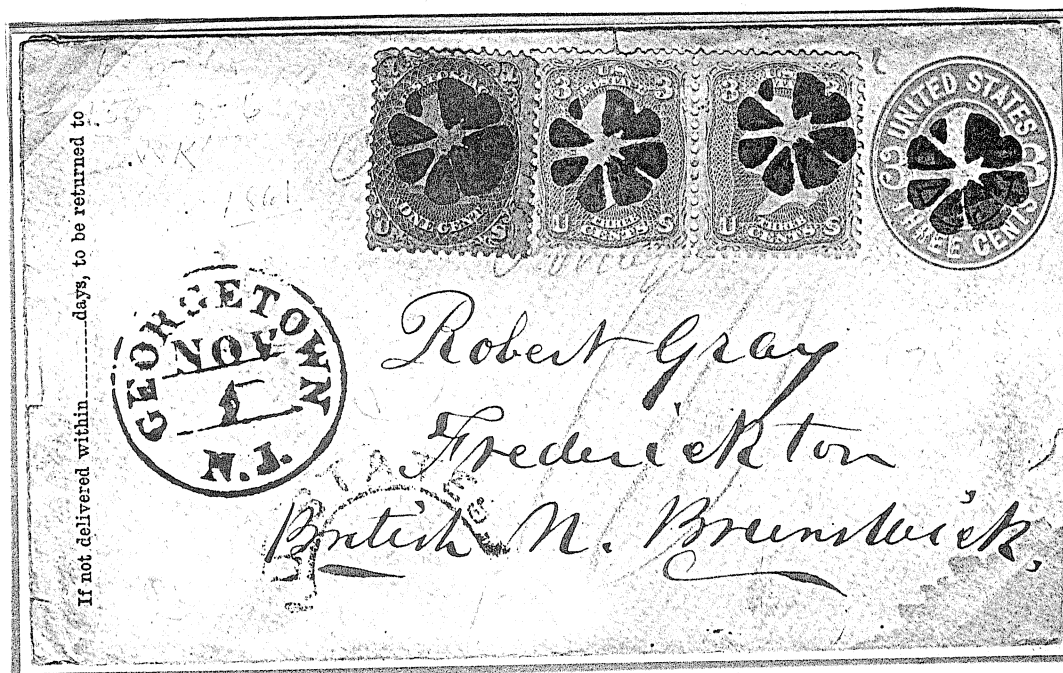 If not delivered within........days, to be returned to
1861
U 3 3 S
ONE CENT.
U S
3 3
U THREE CENTS S
3
U THREE CENTS S
UNITED STATES
THREE CENTS
GEORGETOWN
NOV
1
N.J.
U. STATES
Robert Gray
Frederickton
British N. Brunswick.